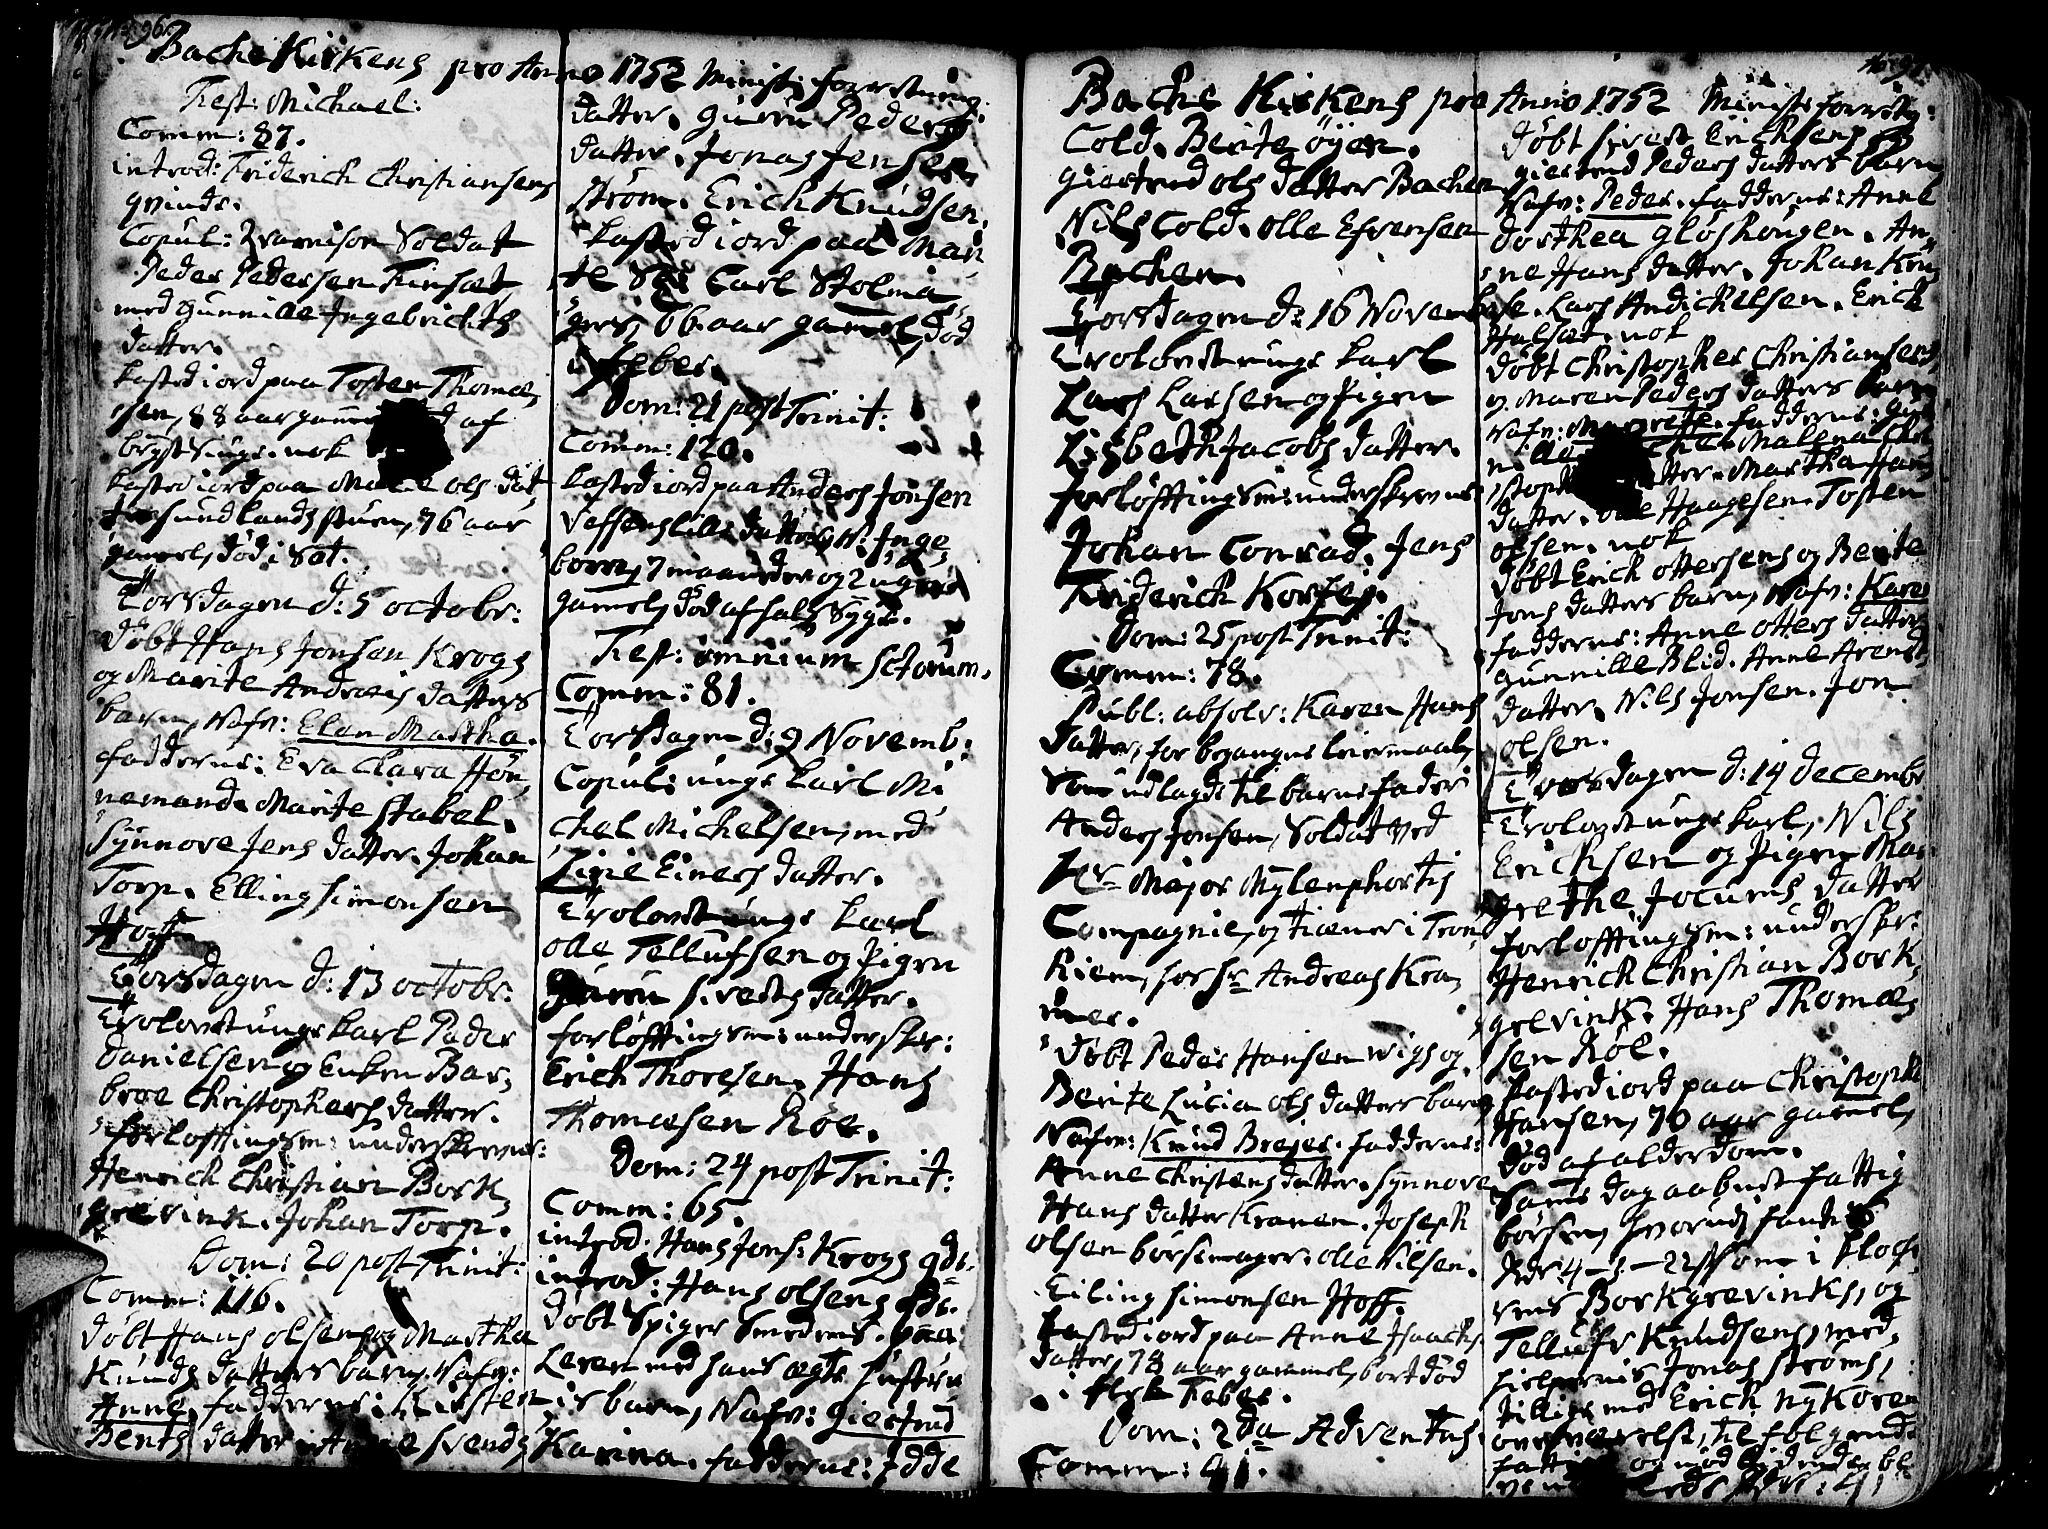 96.
Bache Kirkens pro Anno 1752 Minist: forretning:
Fest: Michael:
Comm: 87.
introd: Friderich Christiansens
qvinde.
Copul: Soldat
Peder Pedersen Finsæt,
med Gunnille Ingebrichts
datter.
kasted iord paa Tosten Thomæ
sen, 88 aar gammel af
bryst Siuge. nok
kasted iord paa ols dat
ter sundlands stuen, 76 aar
gamel, død i Sot.
Torsdagen d: 5 octobr:
døbt Hans Jonsen Krogs
og Marite Andreæ datters
barn, Nafn: Elen Martha.
fadderne: Eva Clara Høn,
nemand. Marite Stabel.
Synnove Jens datter. Johan
Torp. Elling Simonsen
Hoff.
Torsdagen d: 13 octobr:
Trolovet unge karl Peder
Danielsen og Enken Bar,
broe Christophers datter.
forløfftingsm: underskrevne:
Henrich Christian Bork,
grevink. Johan Torp.
Dom: 20 post Trinit:
Comm: 116.
døbt Hans olsens og Martha
Knuds datters barn, Nafn:
Anne. fadderne: Kirsten
Bents datter. Anne Svends
datter. Guru Peders
datter. Jonas Jensen
strøm. Erich Knudsen.
kasted iord paa
Carl Stolma,
gers, 66 aar gamel, død
i feber.
Dom: 21 post Trinit:
Comm: 120.
kasted iord paa Anders Jonsen
Veffens lille datter N: Inge,
borre, 7 maaneder og 2 uger
gamel, død af hals Syge.
Fest: omnium sctorum.
Comm: 81.
Torsdagen d: 9 Novemb:
Copul: unge karl Mi,
chel Michelsen, med
Einers datter.
Trolovet unge karl
olle Tellufsen og Pigen
Guru Siverts datter.
forløfftingsm: underskr:
Erich Thoresen. Hans
Thomæsen Röe.
Dom: 24 post Trinit:
Comm: 65.
introd: Hans Jons: Krogs qde.
introd: Hans olsens qde.
døbt Spiger Smedens.
Leren med hans ægte hustru
is barn, Nafn: Giertrud
Karina. fadderne: Edde
97.
Bache Kirkens pro Anno 1752 Minist: forretn:
Cold. Berite öyen.
Giertrud ols datter Bachen
Nils Cold. olle Efvensen
Bachen.
Torsdagen d: 16 Novembr:
Trolovet unge karl
Lars Larsen og Pigen
Lisbeth Jacobs datter.
forløfftingsm: underskrevne
Johan Conrad. Jens
Friderich Korfej.
Dom: 25 post Trinit:
Comm: 78.
Publ: absolv: Karen Hans
datter, for begangne leiermaal,
som udlagde til barnefader
Anders Jonsen, Soldat ved
Hr Major Mylenphortis
Compagnie, og tiener i Tron,
hiem, hos Sr Andreas Kra,
mer.
døbt Peder Hansen Wigs og
Berite Lucia ols datters barn
Nafn: Knud Brejer. fadderne:
Anne Christens datter. Synnove
Hans datter Kranen. Joseph
olsen børsemager. olle Nilsen.
Eiling Simonsen Hoff.
kasted iord paa Anne Isachs
datter, 78 aar gammel, bort død
i Feber.
Dom: 2da Adventus.
Comm: 41.
døbt Sivert Erichsens og
Giertrud Peders datters barn
Nafn: Peder. fadderne: Anne
Dorthea Gløshougen. An,
ne Hans datter. Johan
Lars Andichelsen. Erich
Halset. nok
døbt Christopher Christiansens,
og Maren Peders datters barn
Nafn: Margrethe. fadderne:
Malena
datter. Martha Hans
datter. Olle Haagesen. Tosten
olsen. nok
døbt Erich ottersens og Berite
Jons datters barn, Nafn: Karen
fadderne: Anne otters datter
Gunnille Blid. Anne Arents
datter. Nils Jonsen. Jon
olsen.
Torsdagen d: 14 decembr
Trolovet unge karl, Nils
Erichsen og Pigen Mar,
grethe Jocums datter
forløfftingsm: underskr:
Henrich Christian Bork,
grevink. Hans Thomæ,
sen Röe.
kasted iord paa Christopher
Hansen, 70 aar gamel,
død af alderdom.
Samme dag aabnet fattig
børsen, hvorudj fantes
Rdr 4-3-22 s som i kloch,
rens Borkgrevinks, og
Tellufs Knudsens, med,
hielpernis Jonas Strøms,
tillige med Erich Nykorens
overværelse, til følgende
fattige og nødlidende bl: